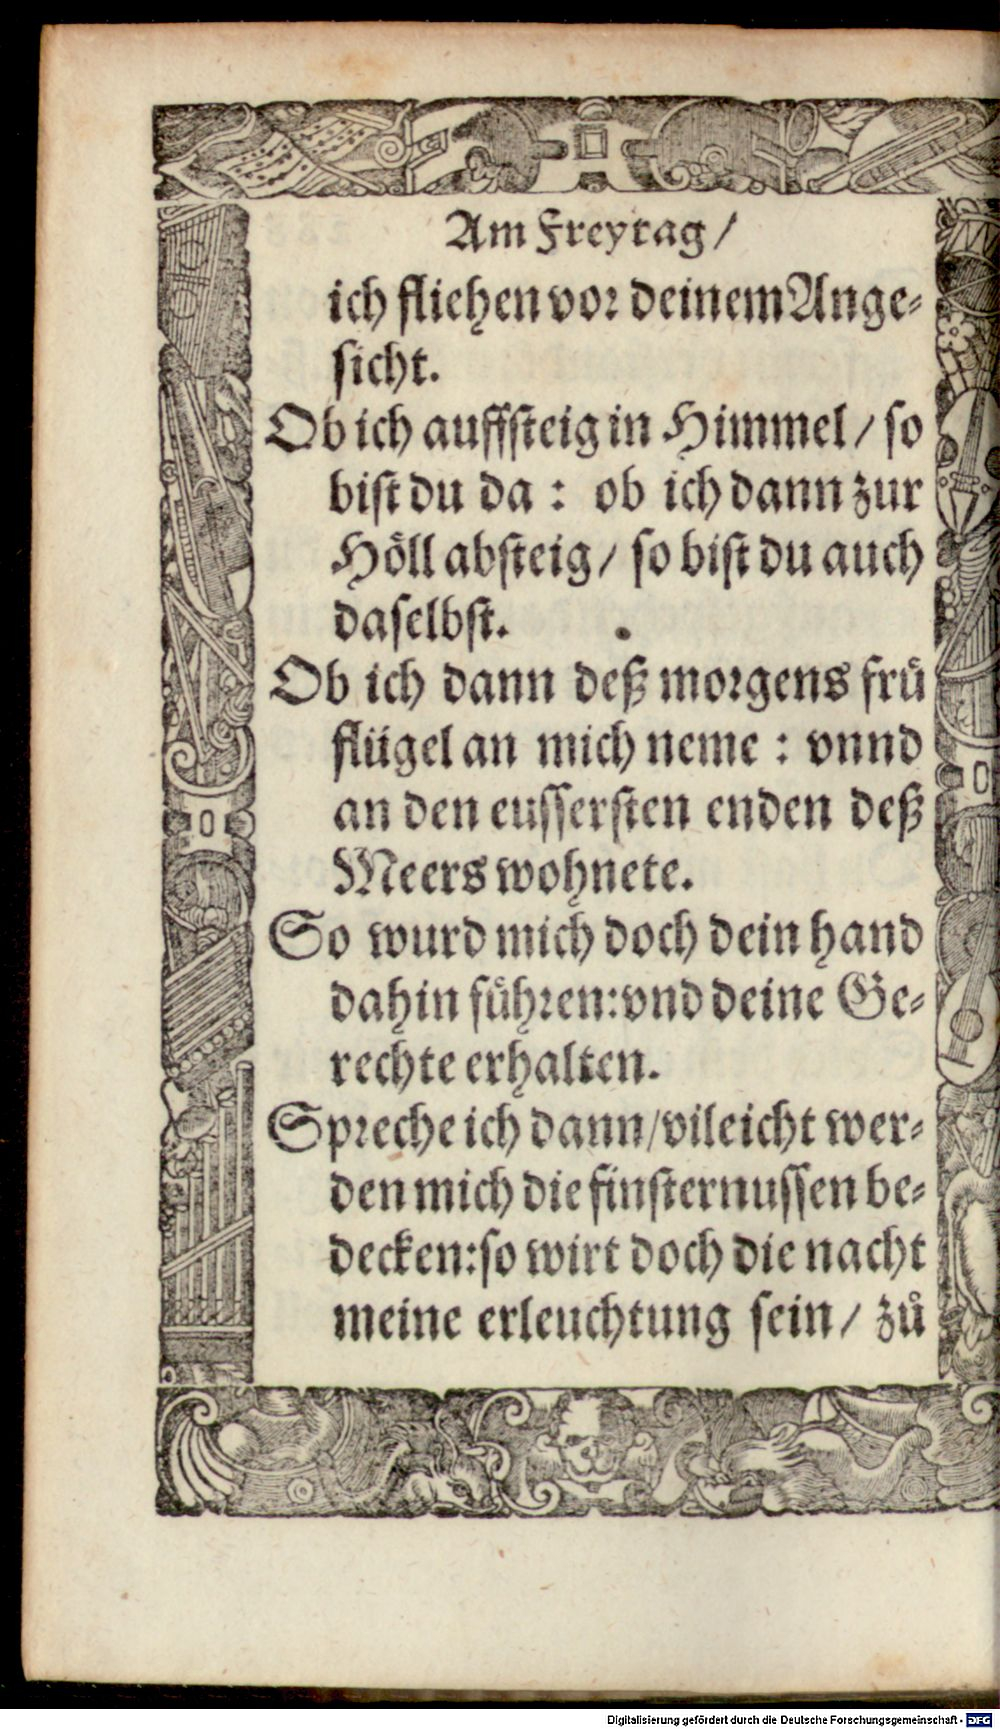 Am Freytag/
ich fliehen vor deinem Ange⸗
sicht.
Ob ich auffsteig in Himmel/ so
bist du da : ob ich dann zur
Höll absteig/ so bist du auch
daselbst.
Ob ich dann deß morgens frü
flügel an mich neme : vnnd
an den eussersten enden deß
Meers wohnete.
So wurd mich doch dein hand
dahin führen:vnd deine Ge⸗
rechte erhalten.
Spreche ich dann/vileicht wer⸗
den mich die finsternussen be⸗
decken:so wirt doch die nacht
meine erleuchtung sein/ zů
Digitalisierung gefördert durch die Deutsche Forschungsgemeinschaft - DFG